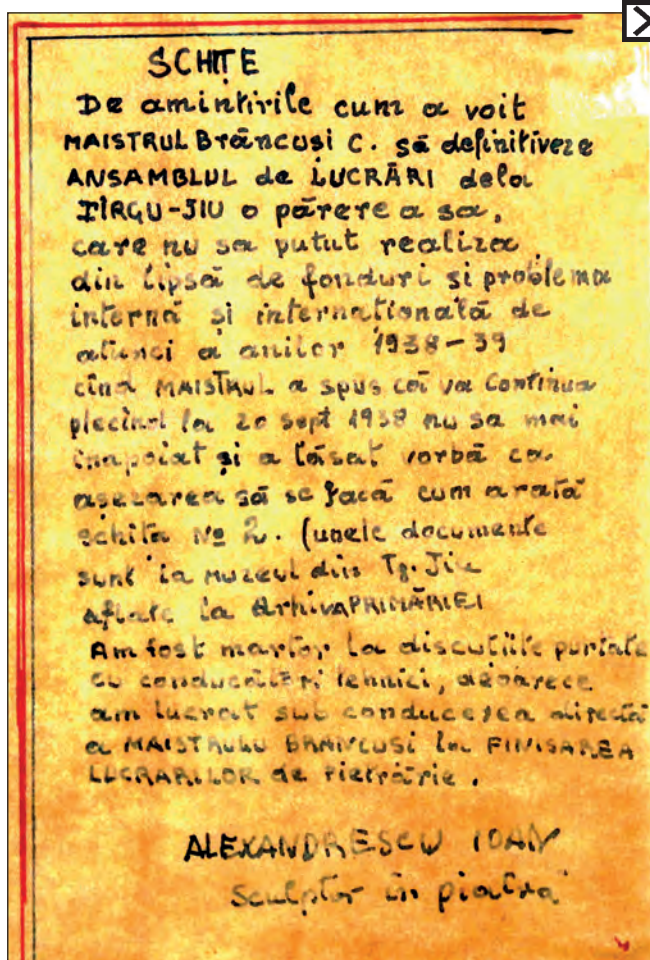 SCHIȚE
De amintirile cum a voit
MAISTRUL Brâncuși C. să definitiveze
ANSAMBLUL de LUCRĂRI dela
TÎRGU-JIU o părere a sa,
care nu sa putut realiza
din lipsă de fonduri si problema
internă si internatională de
atunci a anilor 1938-39
cînd MAISTRUL a spus că va Continua
plecînd la 20 sept 1938 nu sa mai
înapoiat și a lăsat vorbă ca
așezarea să se facă cum arată
schita No 2. (unele documente
sunt la muzeul din Tg. Jiu
aflate la ArhivaPRIMĂRIEI
Am fost martor la discuțiile purtate
cu conducători tehnici, deoarece
am lucrat sub conducerea directă
a MAISTRULU BRANCUSI la FINISAREA
LUCRARILOR de Pietrărie.
ALEXANDRESCU IOAN
Sculptor în piatră